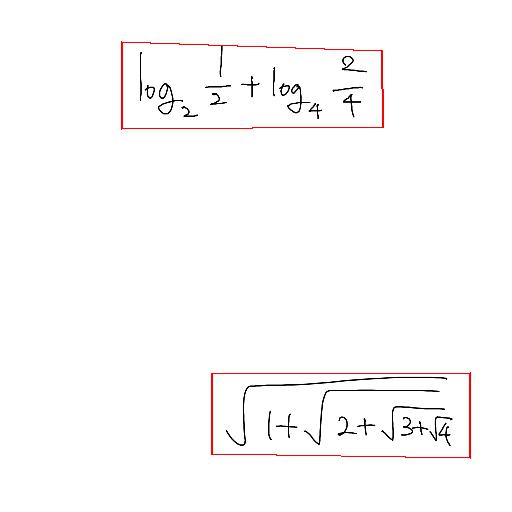 log₂ 1/2 + log₄ 2/4
√(1+√(2+√(3+√4)))